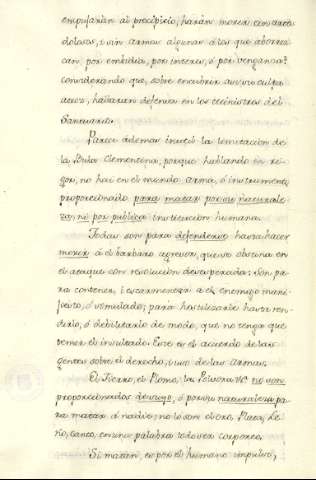 empujaran al precipicio, harán morir con azra
dolosas, i sin armas algunas á los que aborrez
can, por embidia, por interes, ó por venganza?
considerando que, sobre encubrir assi su culpa
hallaran defensa en los ministros del
Santuario.
Parece ademas inutil la limitacion de
la Bula Clementina, porque hablando en ri-
gor, no hai en el mundo arma, ó instrumento
proporcionado para matar por su naturale-
za, no por publica institucion humana.
Todas son para defenderse hasta hacer
morir á el barbaro agresor, que se obstina en
el ataque con resolucion desesperada: son pa
ra contener, i escarmentar a el enemigo mani-
fiesto, ó simulado; para hostilizarle hasta ren-
dirlo, ó debilitarlo de modo, que no tenga que
temer el insultado. Este es el acuerdo de las
gentes sobre el derecho, i uso de las armas.
El Fierro, el Plomo, la Polvora &c. no son
proporcionados de suyo, ó por su naturaleza pa
ra matar á nadie; no lo son el oro, Plata, Le
ño, Canto, en una palabra todo ser corporeo.
Si matan, es por el humano impulso,